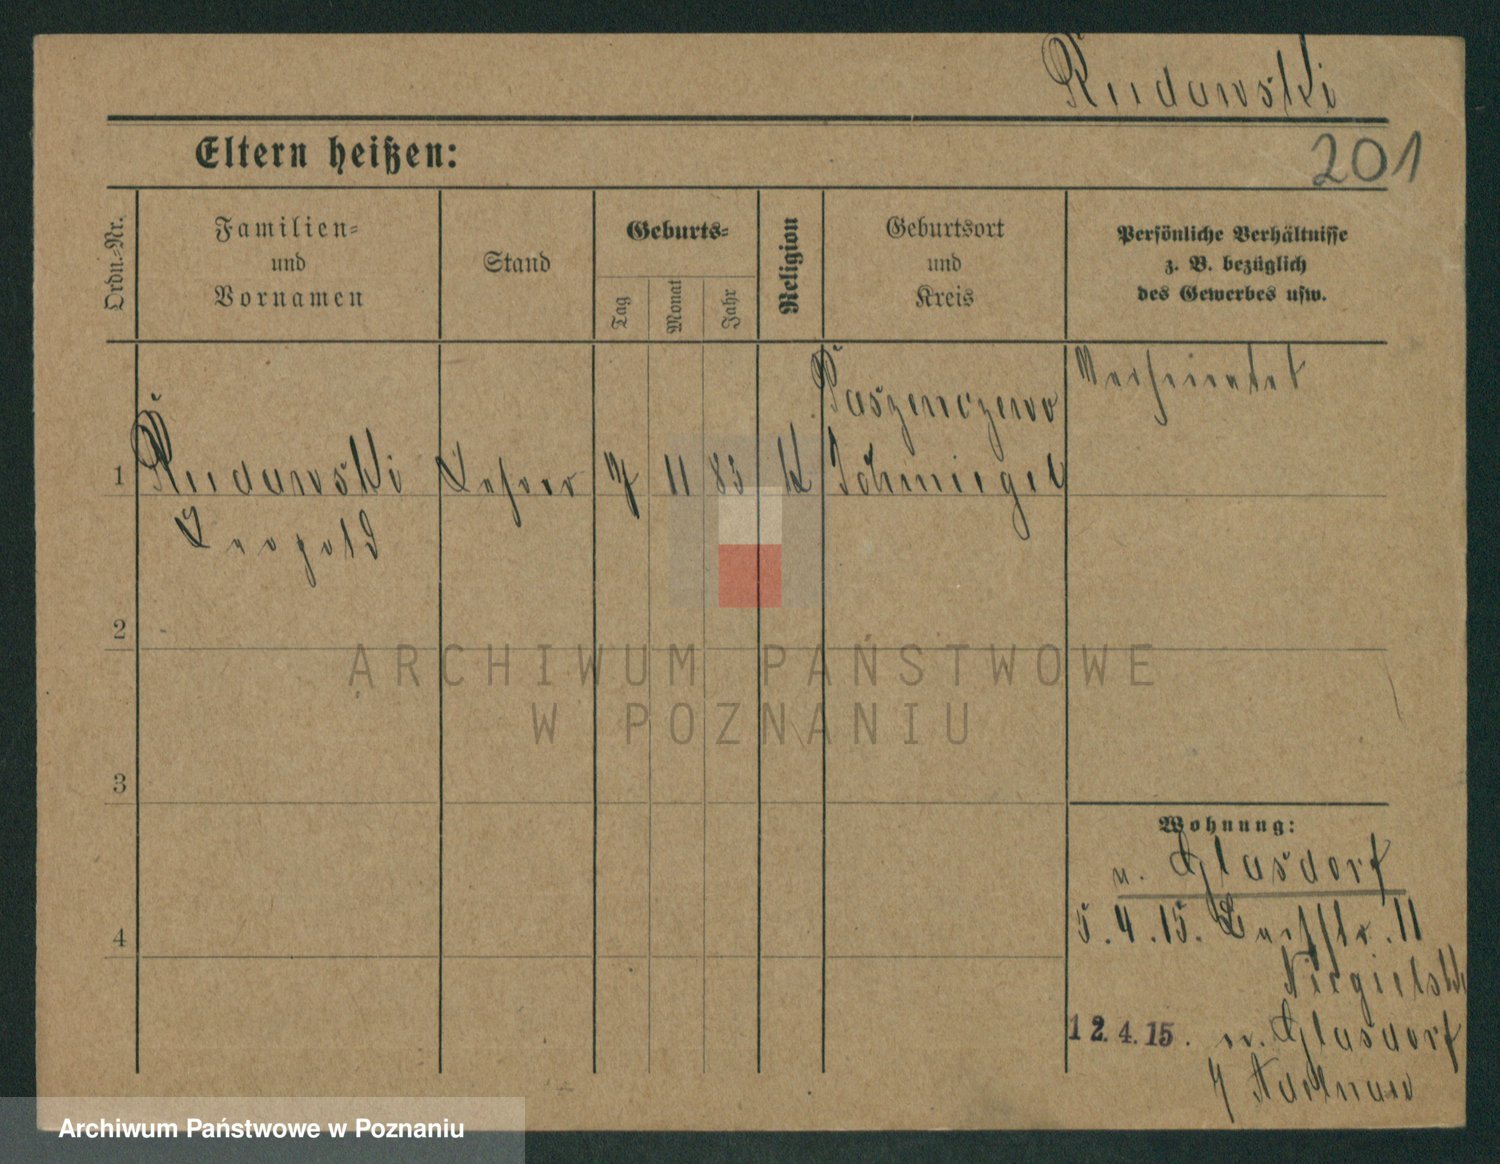 Rudawski
Eltern heißen:
201
Ordn.-Nr.
Familien-
und
Vornamen
Stand
Geburts-
Tag
Monat
Jahr
Religion
Geburtsort
und
Kreis
Persönliche Verhältnisse
z. B. bezüglich
des Gewerbes usw.
1
Rudawski
Leopold
Lehrer
7
11
83
K
Schmiegel
Verheiratet
2
3
4
ARCHIWUM PAŃSTWOWE
W POZNANIU
Wohnung:
n. Glasdorf
5.4.15. 11
12.4.15. n. Glasdorf
Adelnau
Archiwum Państwowe w Poznaniu